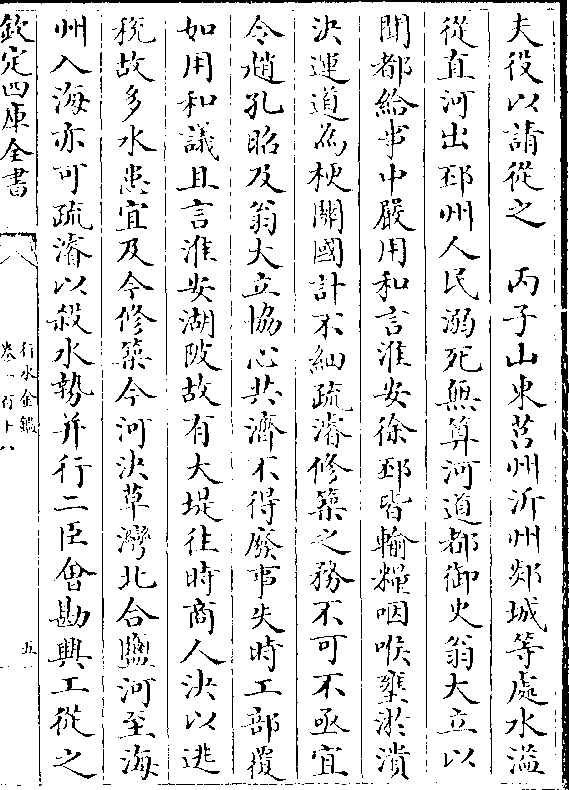 夫役以請從之　丙子山東莒州沂州郯城等處水溢
從直河出邳州人民溺死無算河道都御史翁大立以
聞都給事中嚴用和言淮安徐邳皆輸糧咽喉壅淤潰
決運道為梗關國計不細疏濬修築之務不可不亟宜
令趙孔昭及翁大立協心共濟不得廢事失時工部覆
如用和議且言淮安湖陂故有大堤往時商人決以逃
税故多水患宜及今修築今河決草灣北合鹽河至海
州入海亦可疏濬以殺水勢并行二臣會勘興工從之
欽定四庫全書
行水金鑑
卷一百十八
五